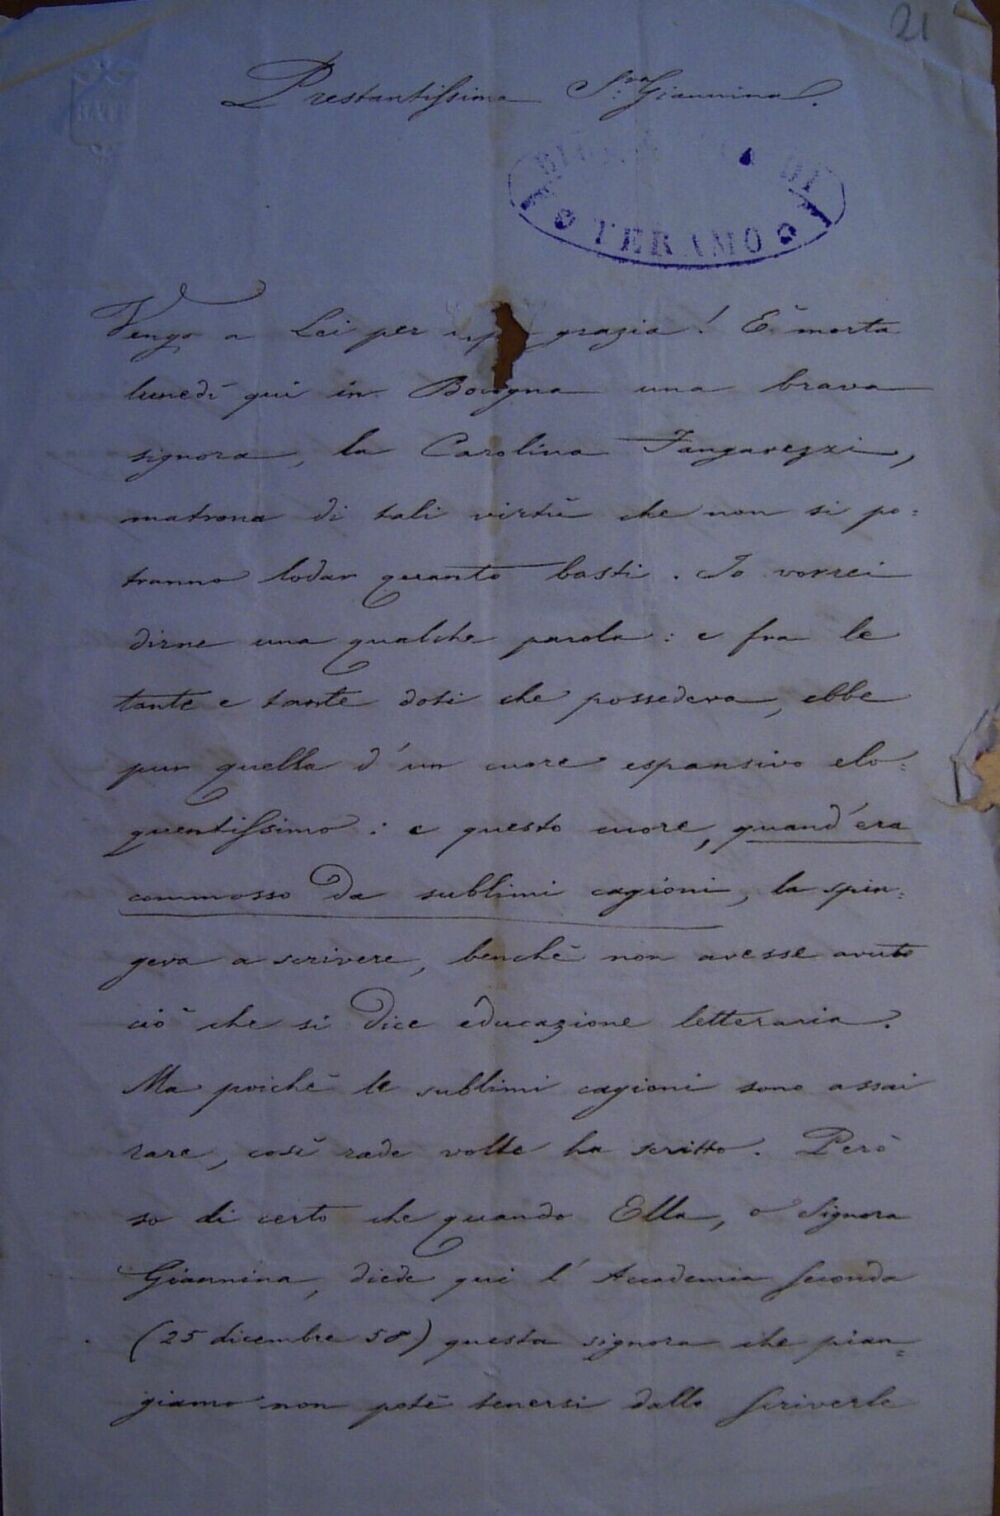 21
Prestantissima Sra Giannina.
DI
TERAMO
Vengo a Lei per grazia! È morta
lunedì qui in Bologna una brava
signora, la Carolina Fangarezzi,
matrona di tali virtù che non si po=
tranno lodar quanto basti. Io vorrei
dirne una qualche parola: e fra le
tante e tante doti che possedeva, ebbe
pur quella d'un cuore espansivo elo=
quentissimo: e questo cuore, quand'era
commosso da sublimi cagioni, la spin=
geva a scrivere, benchè non avesse avuto
ciò che si dice educazione letteraria.
Ma poichè le sublimi cagioni sono assai
rare, così rade volte ha scritto. Però
so di certo che quando Ella, o Signora
Giannina, diede qui l'Accademia seconda
(25 dicembre 58) questa signora che pian=
giamo non potè tenersi dallo scriverle